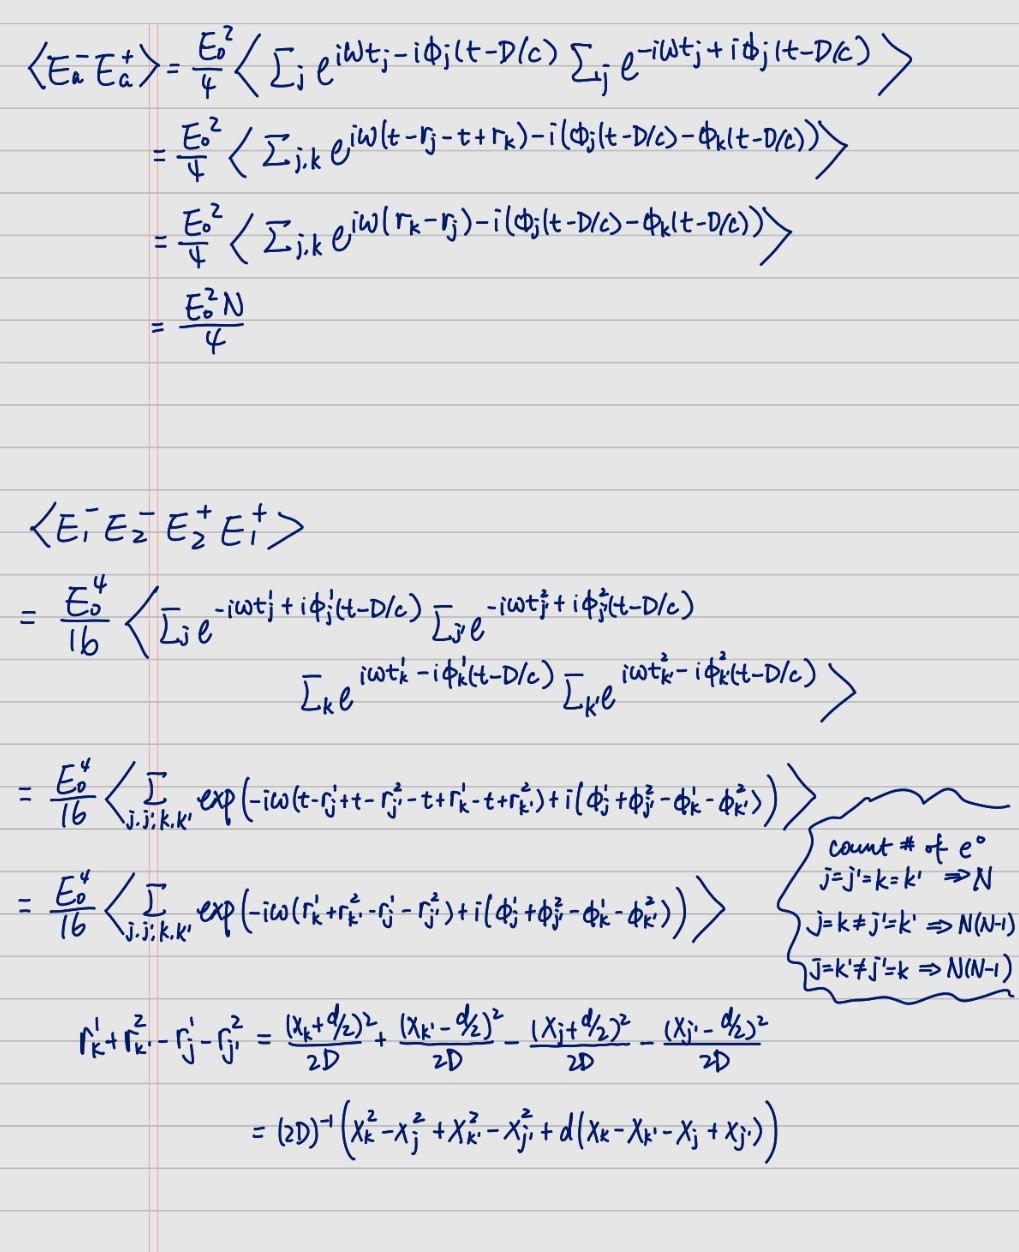 ⟨E_a^- E_a^+⟩ = E_0^2/4 ⟨ Σ_j e^{iωt_j - iϕ_j(t-D/c)} Σ_j e^{-iωt_j + iϕ_j(t-D/c)} ⟩
= E_0^2/4 ⟨ Σ_{j,k} e^{iω(t-r_j-t+r_k) - i(ϕ_j(t-D/c) - ϕ_k(t-D/c))} ⟩
= E_0^2/4 ⟨ Σ_{j,k} e^{iω(r_k-r_j) - i(ϕ_j(t-D/c) - ϕ_k(t-D/c))} ⟩
= E_0^2 N/4
⟨E_1^- E_2^- E_2^+ E_1^+⟩
= E_0^4/16 ⟨ Σ_j e^{-iωt_j^1 + iϕ_j^1(t-D/c)} Σ_{j'} e^{-iωt_{j'}^2 + iϕ_{j'}^2(t-D/c)}
Σ_k e^{iωt_k^1 - iϕ_k^1(t-D/c)} Σ_{k'} e^{iωt_{k'}^2 - iϕ_{k'}^2(t-D/c)} ⟩
= E_0^4/16 ⟨ Σ_{j,j',k,k'} exp(-iω(t-r_j^1+t-r_{j'}^2-t+r_k^1-t+r_{k'}^2) + i(ϕ_j^1+ϕ_{j'}^2-ϕ_k^1-ϕ_{k'}^2)) ⟩
= E_0^4/16 ⟨ Σ_{j,j',k,k'} exp(-iω(r_k^1+r_{k'}^2-r_j^1-r_{j'}^2) + i(ϕ_j^1+ϕ_{j'}^2-ϕ_k^1-ϕ_{k'}^2)) ⟩
count # of e^0
j=j'=k=k' ⇒ N
j=k≠j'=k' ⇒ N(N-1)
j=k'≠j'=k ⇒ N(N-1)
r_k^1+r_{k'}^2-r_j^1-r_{j'}^2 = (x_k+d/2)^2/2D + (x_{k'}-d/2)^2/2D - (x_j+d/2)^2/2D - (x_{j'}-d/2)^2/2D
= (2D)^{-1} (x_k^2-x_j^2+x_{k'}^2-x_{j'}^2+d(x_k-x_{k'}-x_j+x_{j'}))